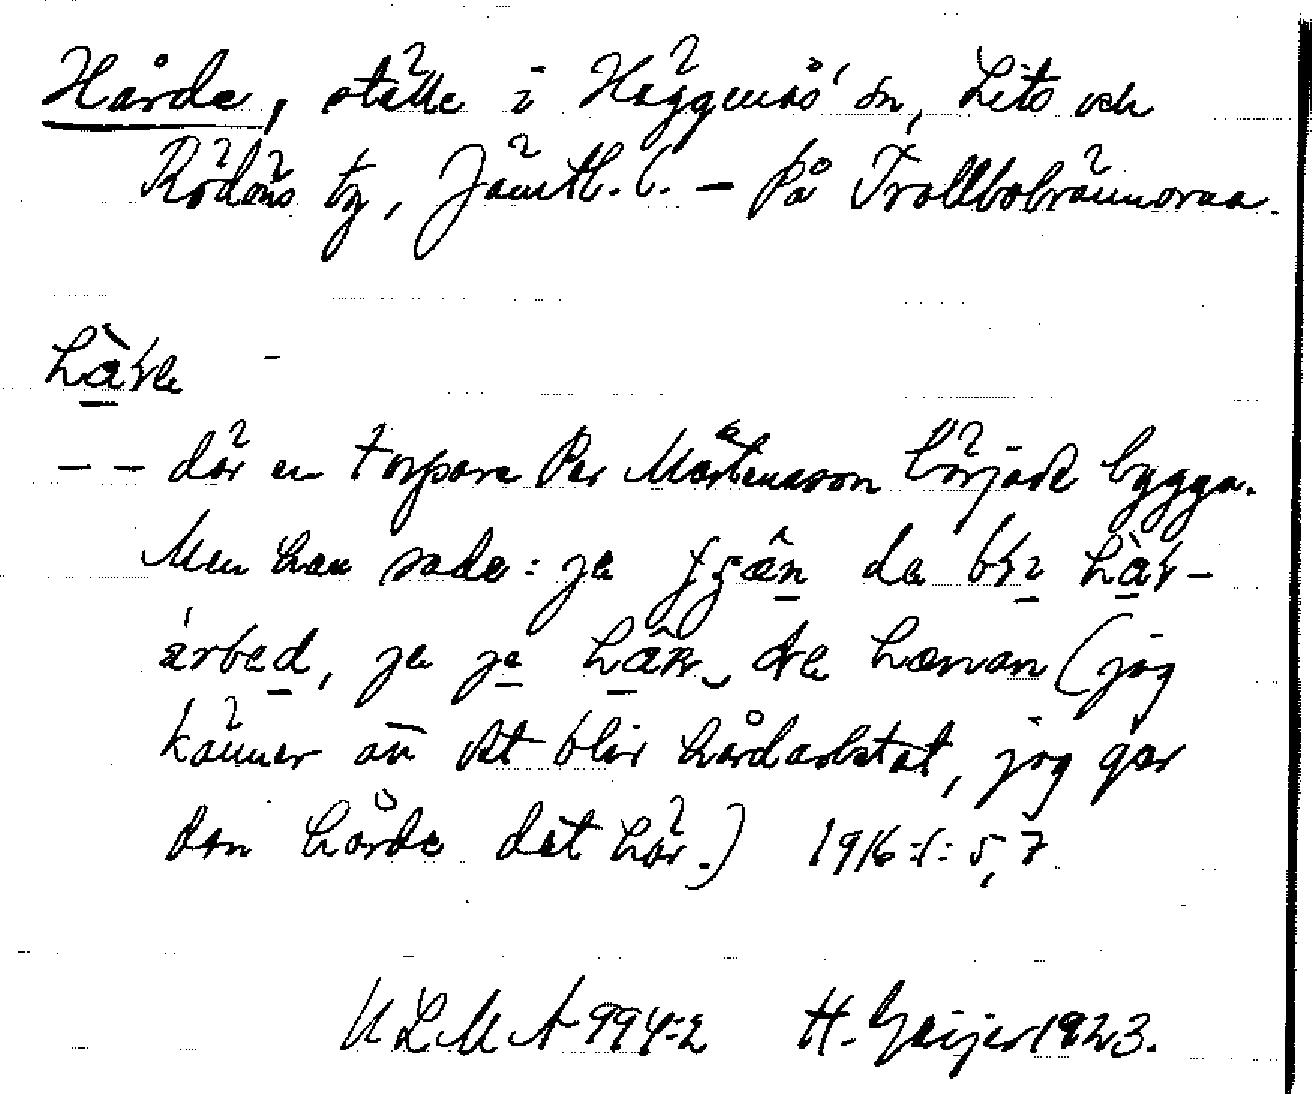 Hårde, ställe i Häggenås' sn, Lits och
Rödöns tg, Jämtl. l. – På Trollbobrännorna.
hàrɖe –
– – där en torpare Per Mårtensson började bygga.
Men han sade: ja da bɽi hàɽ-
árbed, ja ja de hærnan (jag
känner an det blir hårdarbetat, jag ger
den hårde det här.) 1916:1: 5, 7
ULMA 994:2 H. Geijer 1923.